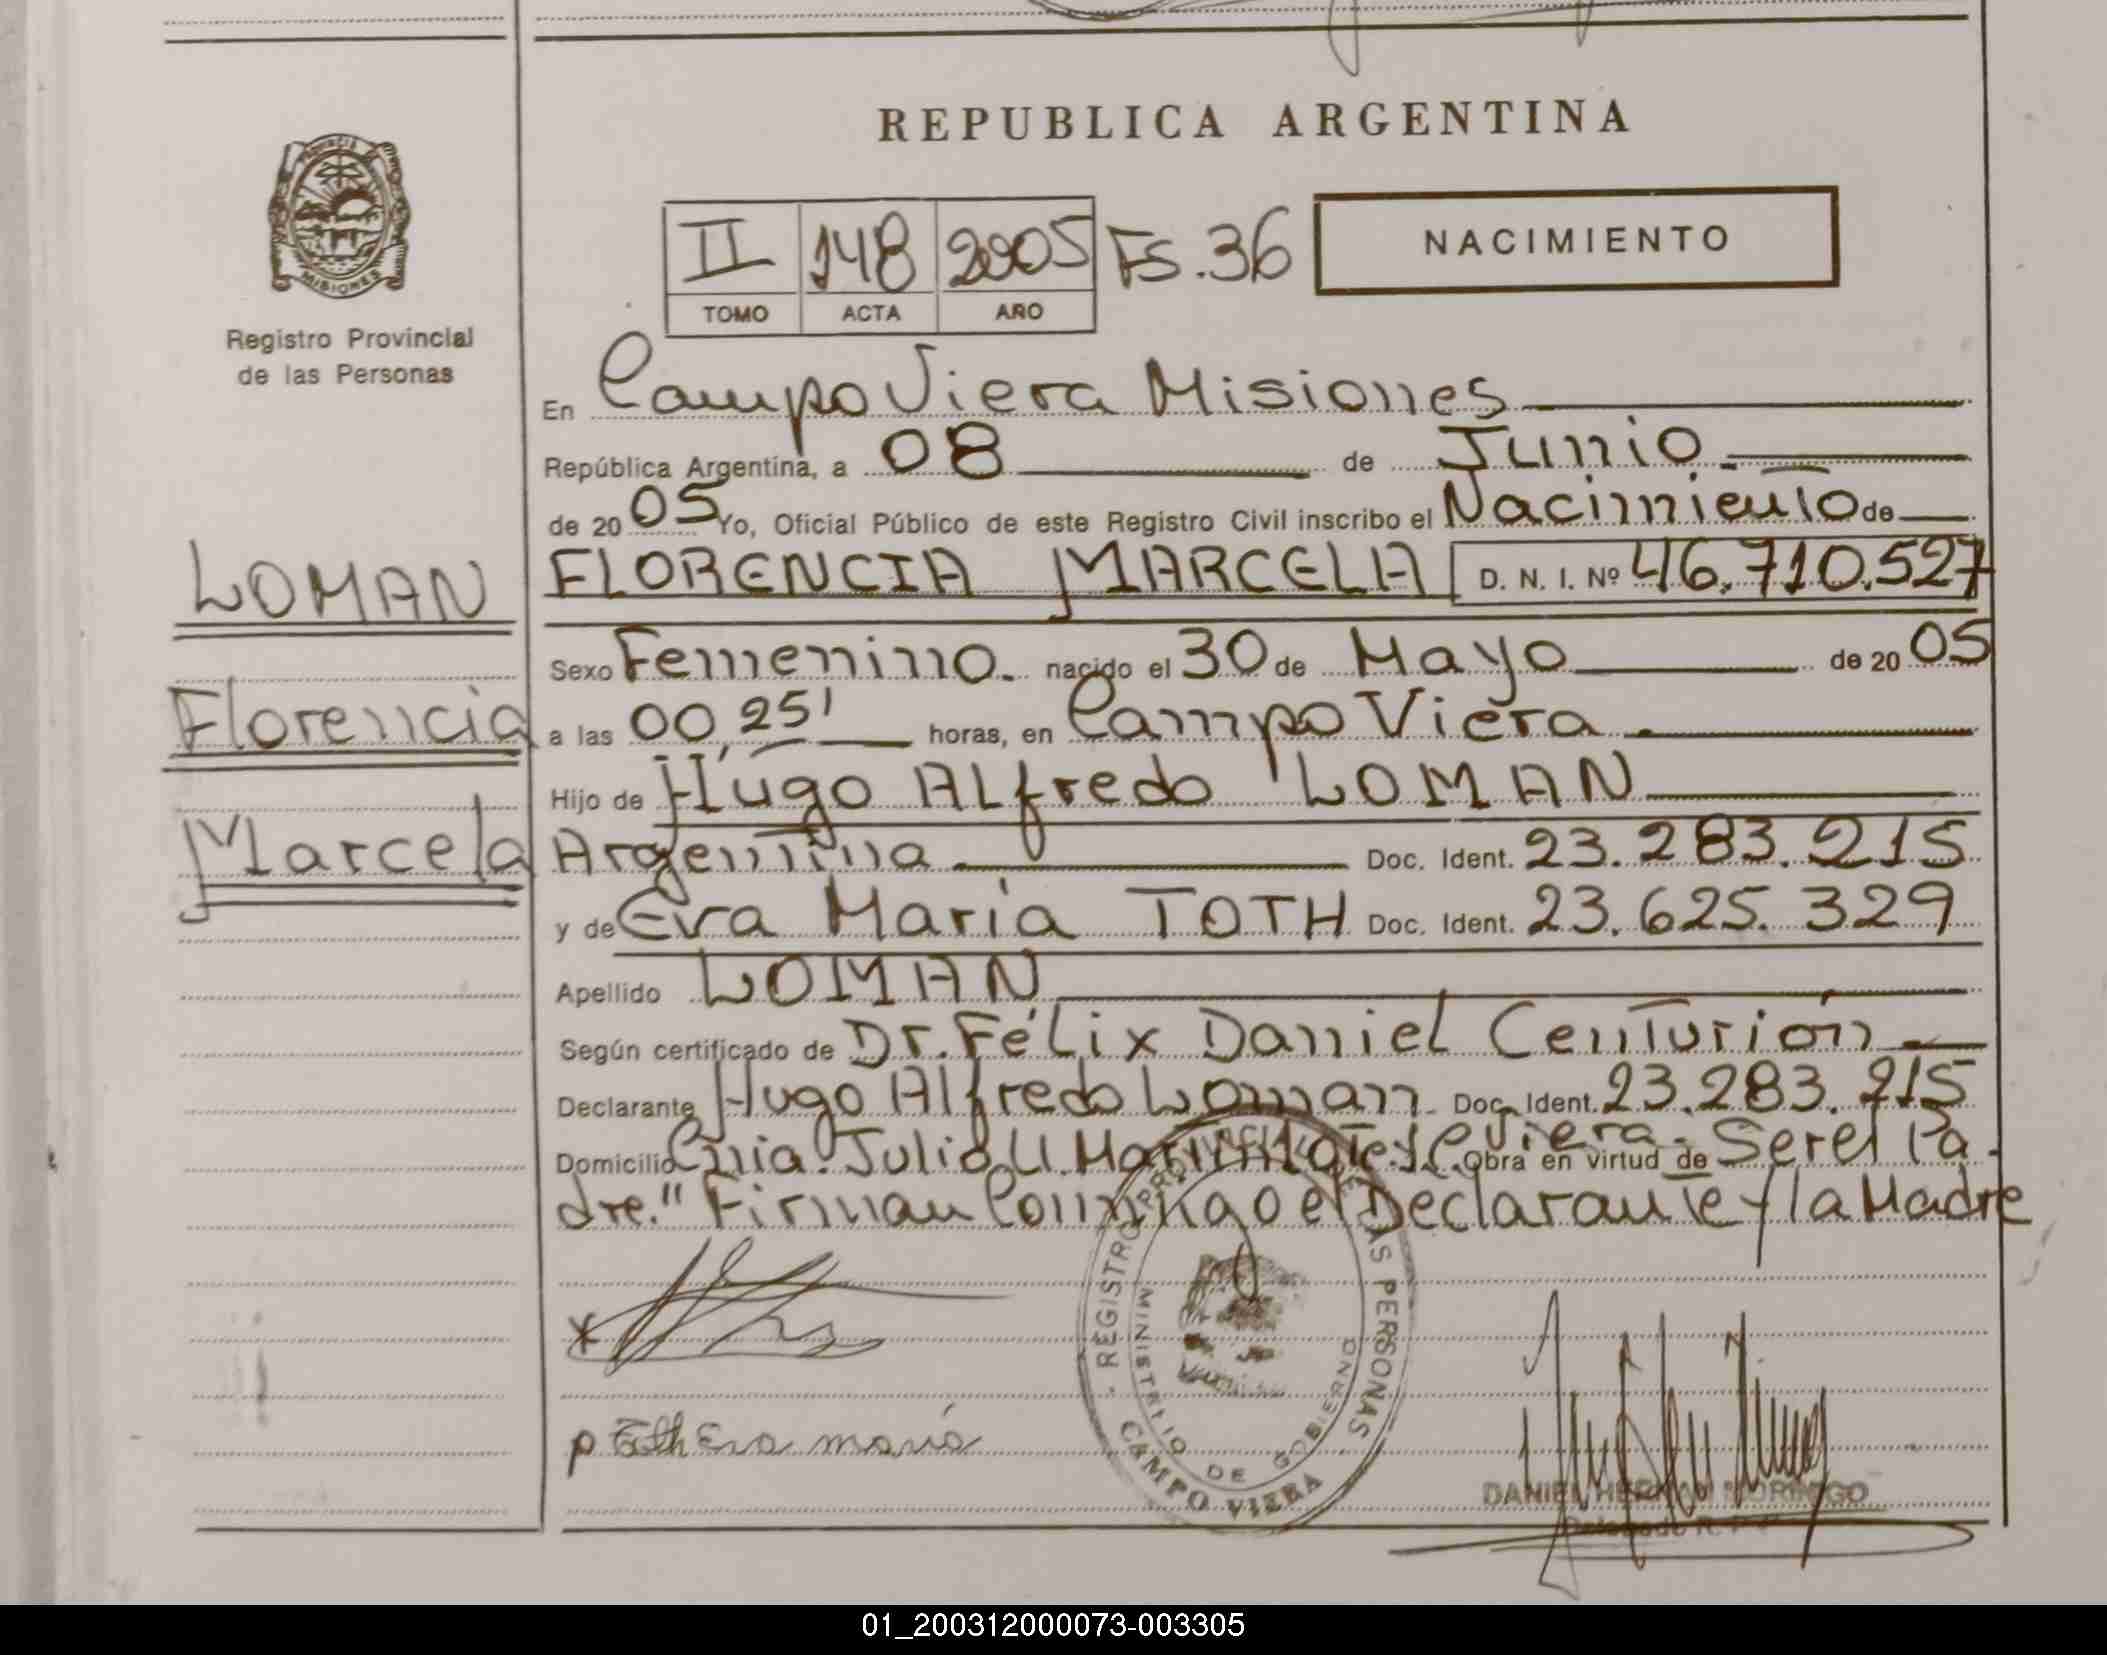 REPUBLICA ARGENTINA
PROVINCIA
MISIONES
Registro Provincial
de las Personas
II 148 2005 Fs. 36
TOMO ACTA AÑO
NACIMIENTO
En Campo Viera Misiones
República Argentina, a 08 de Junio.
de 20 05 Yo, Oficial Público de este Registro Civil inscribo el Nacimiento de
LOMAN
FLORENCIA MARCELA D. N. I. Nº 46.710.527
Sexo Femenino. nacido el 30 de Mayo de 20 05
Florencia
a las 00,25' horas, en Campo Viera.
Hijo de Hugo ALfredo LOMAN
Marcela
Argentina. Doc. Ident. 23.283.215
y de Eva María TOTH Doc. Ident. 23.625.329
Apellido LOMAN
Según certificado de Dr. Félix Daniel Centurión
Declarante Hugo Alfredo Loman Doc. Ident. 23.283.215
Domicilio Cnia. Julio U. Martin Lote 1 C. Viera. Obra en virtud de Ser el Pa
dre." Firman Conmigo el Declarante y la Madre
REGISTRO PROVINCIAL DE LAS PERSONAS
MINISTERIO DE GOBIERNO
CAMPO VIERA
Toth Eva maría
DANIEL HERNAN
Delegado R.
01_200312000073-003305